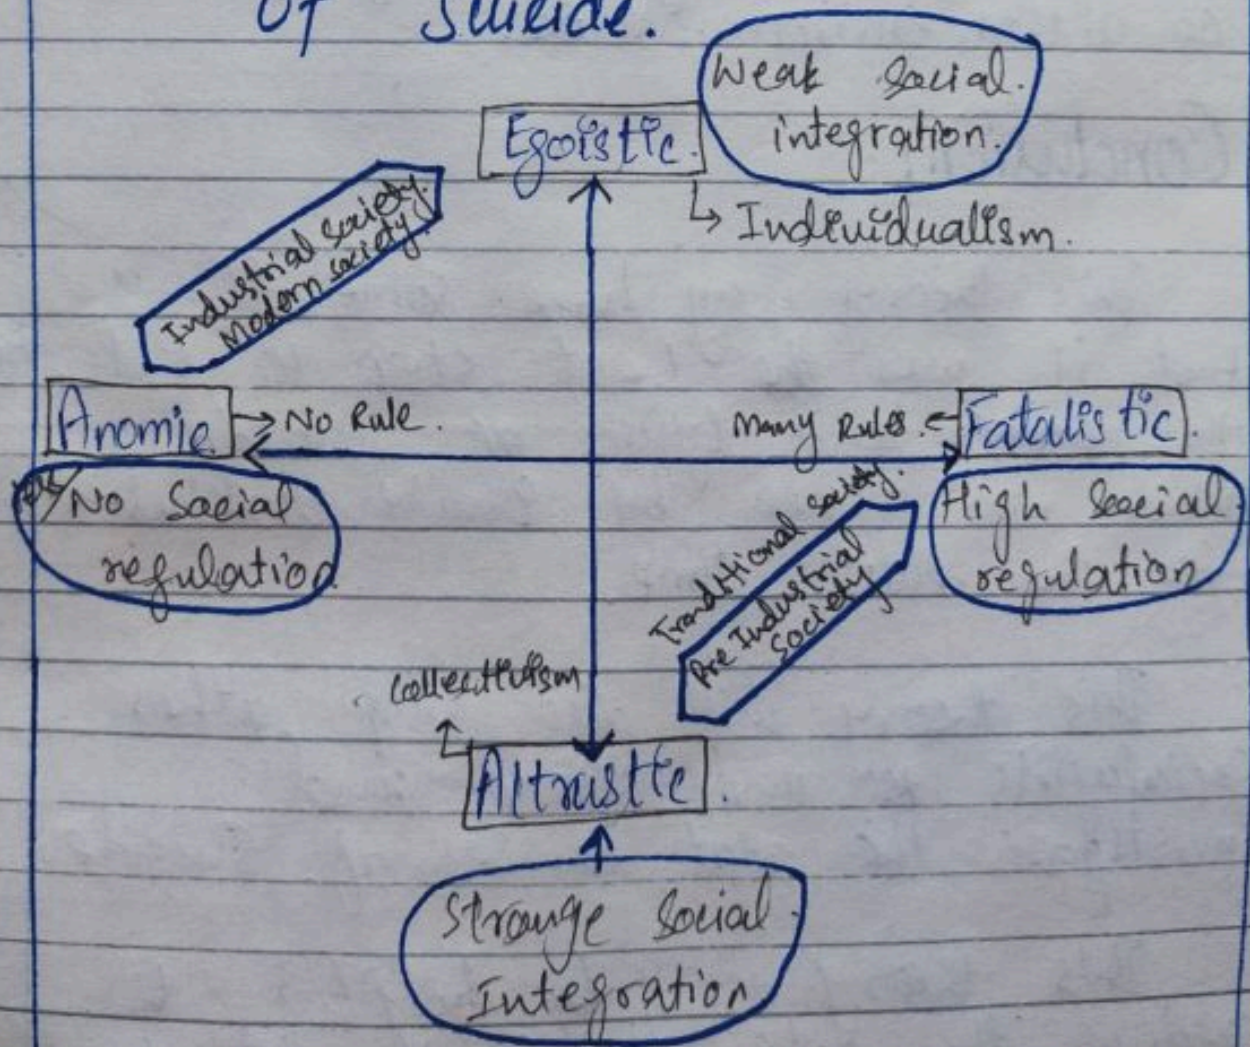 Of Suicide.
Weak Social.
integration.
Egoistic.
Individualism.
Industrial society.
Modern society
Anomie
No Rule.
Many Rules.
Fatalistic.
No Social
regulation
High Social
regulation
Traditional society.
Pre Industrial
society
Collectivism
Altrustic
Strong Social
Integration